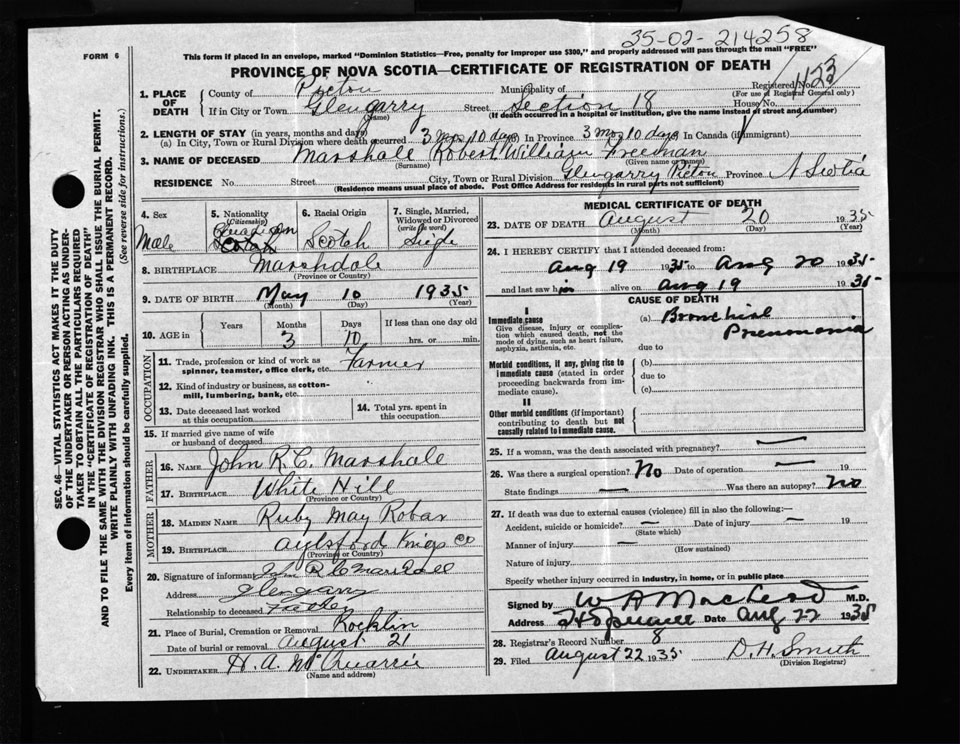 35-02-214258
FORM 6
This form if placed in an envelope, marked "Dominion Statistics—Free, penalty for improper use $300," and properly addressed will pass through the mail "FREE"
PROVINCE OF NOVA SCOTIA—CERTIFICATE OF REGISTRATION OF DEATH
Registered No. 1123
(For use of Registrar General only)
1. PLACE OF DEATH
County of Pictou Municipality of
If in City or Town Glengarry Street Section 18 House No.
(Name) (If death occurred in a hospital or institution, give the name instead of street and number)
2. LENGTH OF STAY (in years, months and days)
(a) In City, Town or Rural Division where death occurred 3 Mos 10 days In Province 3 mos 10 days In Canada (if immigrant)
3. NAME OF DECEASED Marshall Robert William Freeman
(Surname) (Given name or names)
RESIDENCE No. Street City, Town or Rural Division Glengarry Pictou Province N Scotia
(Residence means usual place of abode. Post Office Address for residents in rural parts not sufficient)
4. Sex
Male
5. Nationality
(Citizenship)
Canadian
Scotch
6. Racial Origin
Scotch
7. Single, Married, Widowed or Divorced
(write the word)
Single
8. BIRTHPLACE Marshdale
(Province or Country)
9. DATE OF BIRTH May 10 1935
(Month) (Day) (Year)
10. AGE in
Years Months Days If less than one day old
3 10 hrs. or min.
OCCUPATION
11. Trade, profession or kind of work as spinner, teamster, office clerk, etc. Farmer
12. Kind of industry or business, as cotton-mill, lumbering, bank, etc.
13. Date deceased last worked at this occupation
14. Total yrs. spent in this occupation.
15. If married give name of wife or husband of deceased
FATHER
16. NAME John R. C. Marshall
17. BIRTHPLACE White Hill
(Province or Country)
MOTHER
18. MAIDEN NAME Ruby May Robar
19. BIRTHPLACE Aylsford Kings Co
(Province or Country)
20. Signature of informant John R C Marshall
Address Glengarry
Relationship to deceased Father
21. Place of Burial, Cremation or Removal Rocklin
Date of burial or removal August 21
22. UNDERTAKER H. A. McQuarrie
(Name and address)
MEDICAL CERTIFICATE OF DEATH
23. DATE OF DEATH August 20 1935
(Month) (Day) (Year)
24. I HEREBY CERTIFY that I attended deceased from:
Aug 19 1935 to Aug 20 1935
and last saw him alive on Aug 19 1935
CAUSE OF DEATH
I
Immediate cause
Give disease, injury or complication which caused death, not the mode of dying, such as heart failure, asphyxia, asthenia, etc.
(a) Bronchial Pneumonia
due to
Morbid conditions, if any, giving rise to immediate cause (stated in order proceeding backwards from immediate cause).
(b)
due to
(c)
II
Other morbid conditions (if important) contributing to death but not causally related to immediate cause.
25. If a woman, was the death associated with pregnancy? —
26. Was there a surgical operation? No Date of operation — 19
State findings — Was there an autopsy? No
27. If death was due to external causes (violence) fill in also the following:—
Accident, suicide or homicide? — Date of injury — 19
(State which)
Manner of injury —
(How sustained)
Nature of injury
Specify whether injury occurred in industry, in home, or in public place
Signed by W A MacLeod M.D.
Address Hopewell Date Aug 22 1935
28. Registrar's Record Number 8
29. Filed August 22 1935 D. H. Smith
(Division Registrar)
SEC. 46—VITAL STATISTICS ACT MAKES IT THE DUTY
OF THE UNDERTAKER OR PERSON ACTING AS UNDER-
TAKER TO OBTAIN ALL THE PARTICULARS REQUIRED
IN THE "CERTIFICATE OF REGISTRATION OF DEATH"
AND TO FILE THE SAME WITH THE DIVISION REGISTRAR WHO SHALL ISSUE THE BURIAL PERMIT.
WRITE PLAINLY WITH UNFADING INK. THIS IS A PERMANENT RECORD.
Every item of information should be carefully supplied. (See reverse side for instructions.)